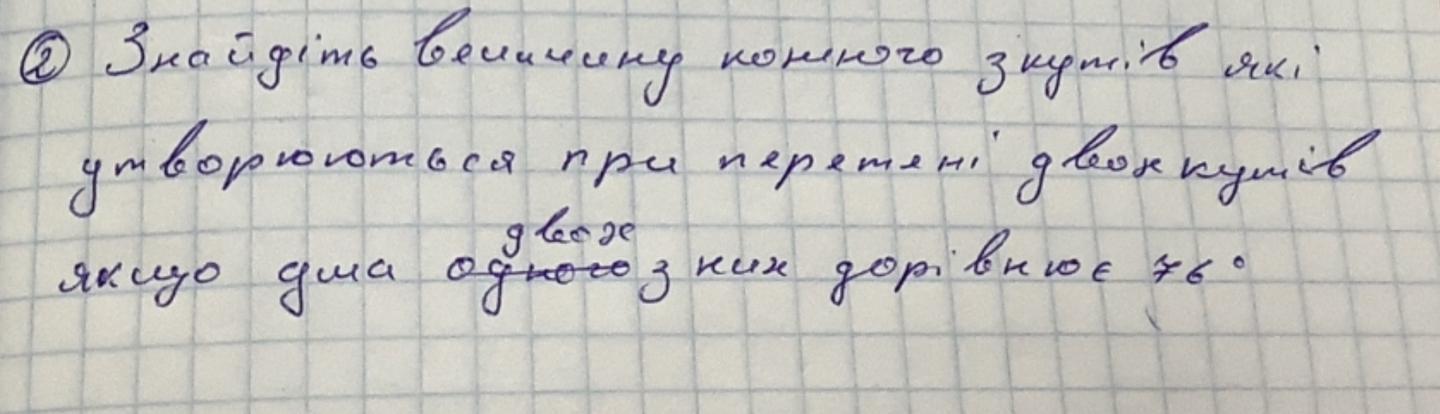 ② Знайдіть величину кожного з кутів які
утворюються при перетені двох кутів
двох
якщо сума одного з них дорівнює 76°